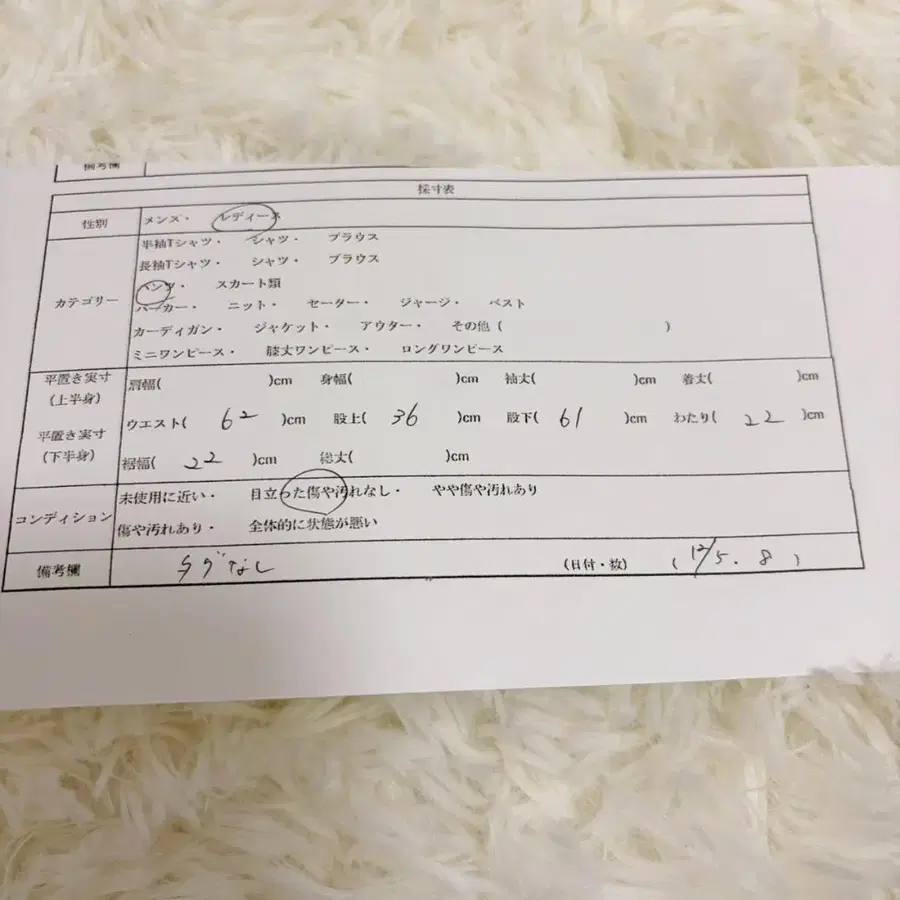 備考欄
採寸表
性別 メンズ・ レディース
半袖Tシャツ・ シャツ・ ブラウス
長袖Tシャツ・ シャツ・ ブラウス
カテゴリー パンツ・ スカート類
パーカー・ ニット・ セーター・ ジャージ・ ベスト
カーディガン・ ジャケット・ アウター・ その他 ( )
ミニワンピース・ 膝丈ワンピース・ ロングワンピース
平置き実寸 (上半身) 肩幅( )cm 身幅( )cm 袖丈( )cm 着丈( )cm
平置き実寸 (下半身) ウエスト( 62 )cm 股上( 36 )cm 股下( 61 )cm わたり( 22 )cm
裾幅( 22 )cm 総丈( )cm
コンディション 未使用に近い・ 目立った傷や汚れなし・ やや傷や汚れあり
傷や汚れあり・ 全体的に状態が悪い
備考欄 タグなし (日付・数) ( 12/5 . 8 )